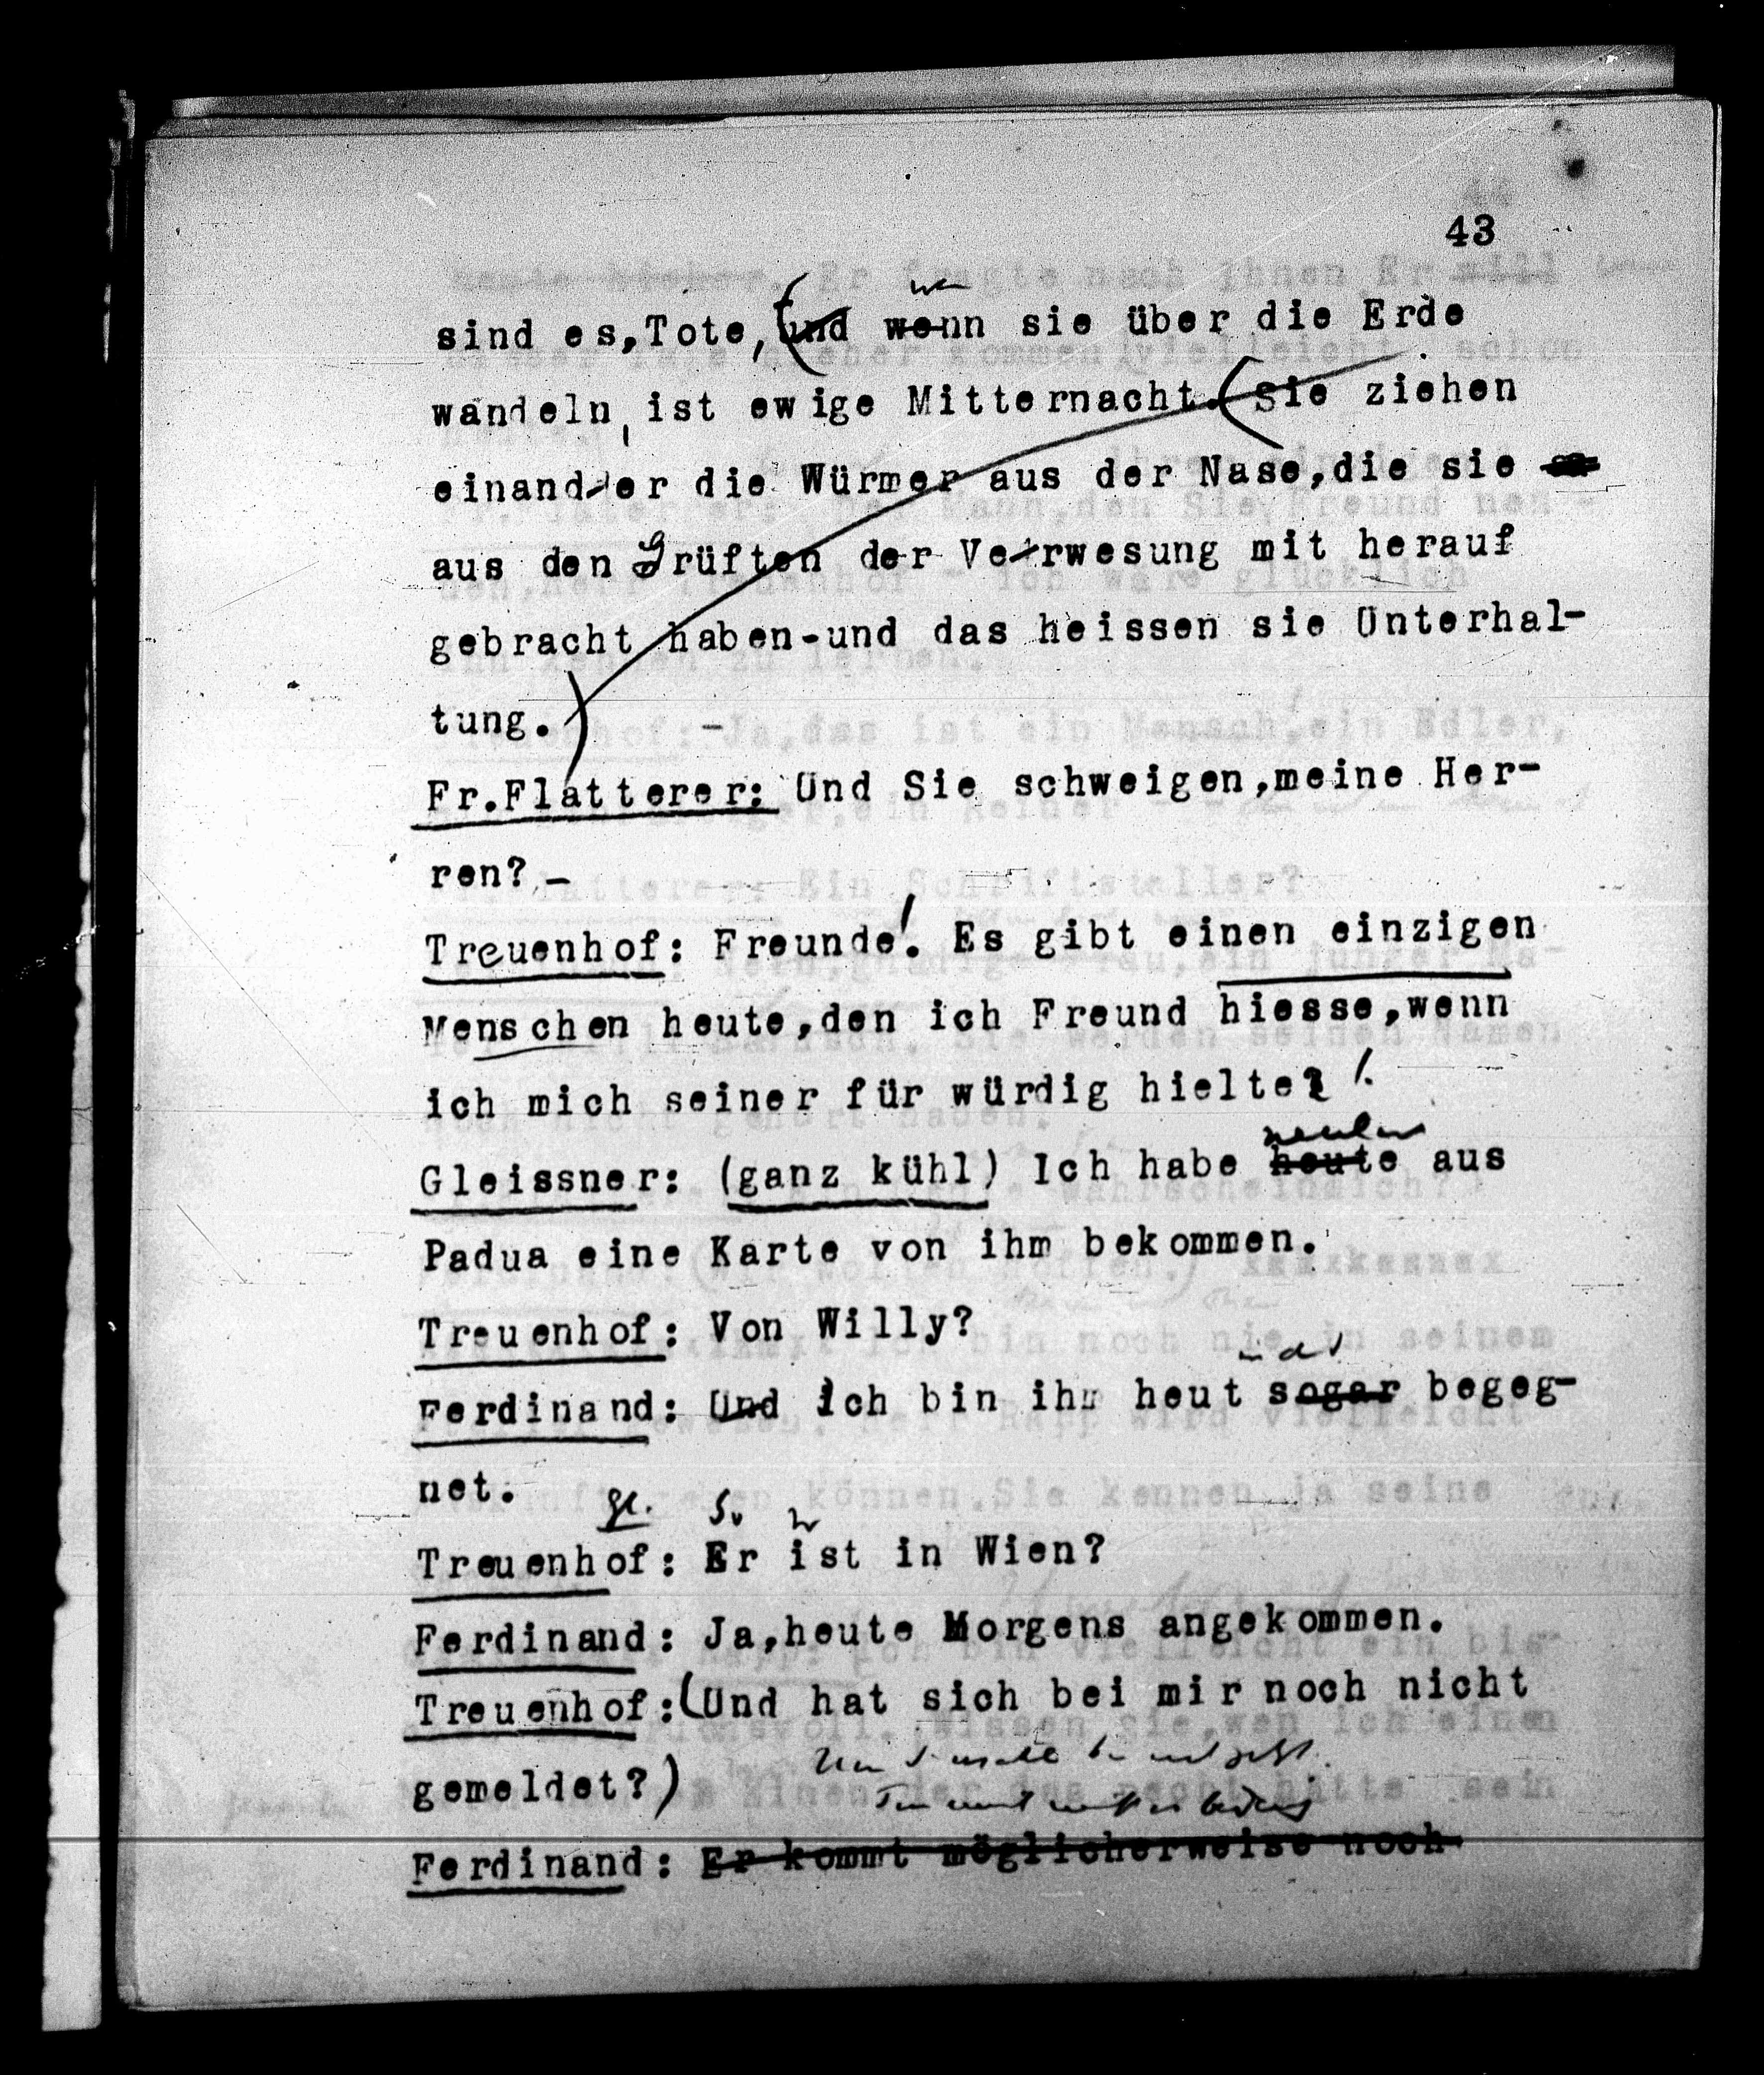 43
sind es,Tote,(und wenn sie über die Erde
wandeln, ist ewige Mitternacht.(Sie ziehen
einander die Würmer aus der Nase,die sie
aus den Grüften der Verwesung mit herauf
gebracht haben-und das heissen sie Unterhal-
tung.) -
Fr.Flatterer: Und Sie schweigen,meine Her-
ren? -
Treuenhof: Freunde! Es gibt einen einzigen
Menschen heute,den ich Freund hiesse,wenn
ich mich seiner für würdig hielte!
Gleissner: (ganz kühl) Ich habe heute aus
Padua eine Karte von ihm bekommen.
Treuenhof: Von Willy?
Ferdinand: Und ich bin ihm heut sogar begeg-
net.
Treuenhof: Er ist in Wien?
Ferdinand: Ja,heute Morgens angekommen.
Treuenhof:(Und hat sich bei mir noch nicht
gemeldet?)
Ferdinand: Er kommt möglicherweise noch